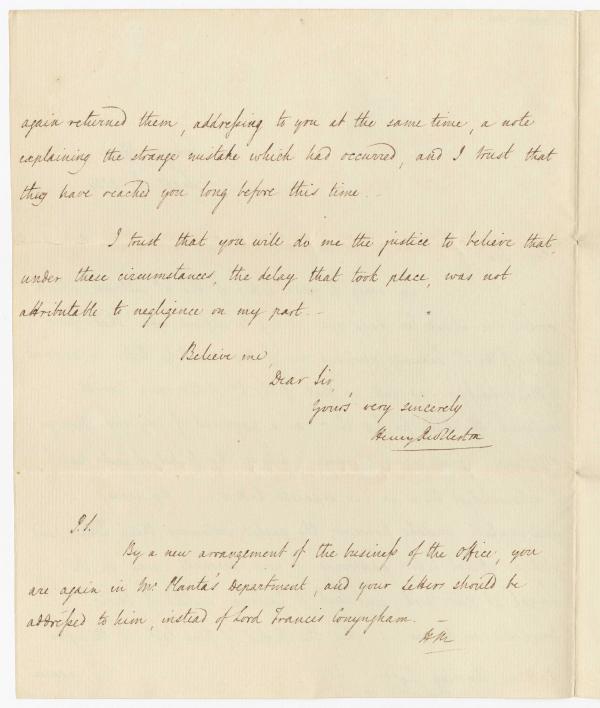 again returned them, addressing to you at the same time, a note
explaining the strange mistake which had occurred, and I trust that
they have reached you long before this time.
I trust that you will do me the justice to believe that,
under these circumstances, the delay that took place, was not
attributable to negligence on my part.
Believe me,
Dear Sir,
Your's very sincerely
Henry
P.S.
By a new arrangement of the business of the Office, you
are again in Mr Planta's Department, and your letters should be
addressed to him, instead of Lord Francis Conyngham.